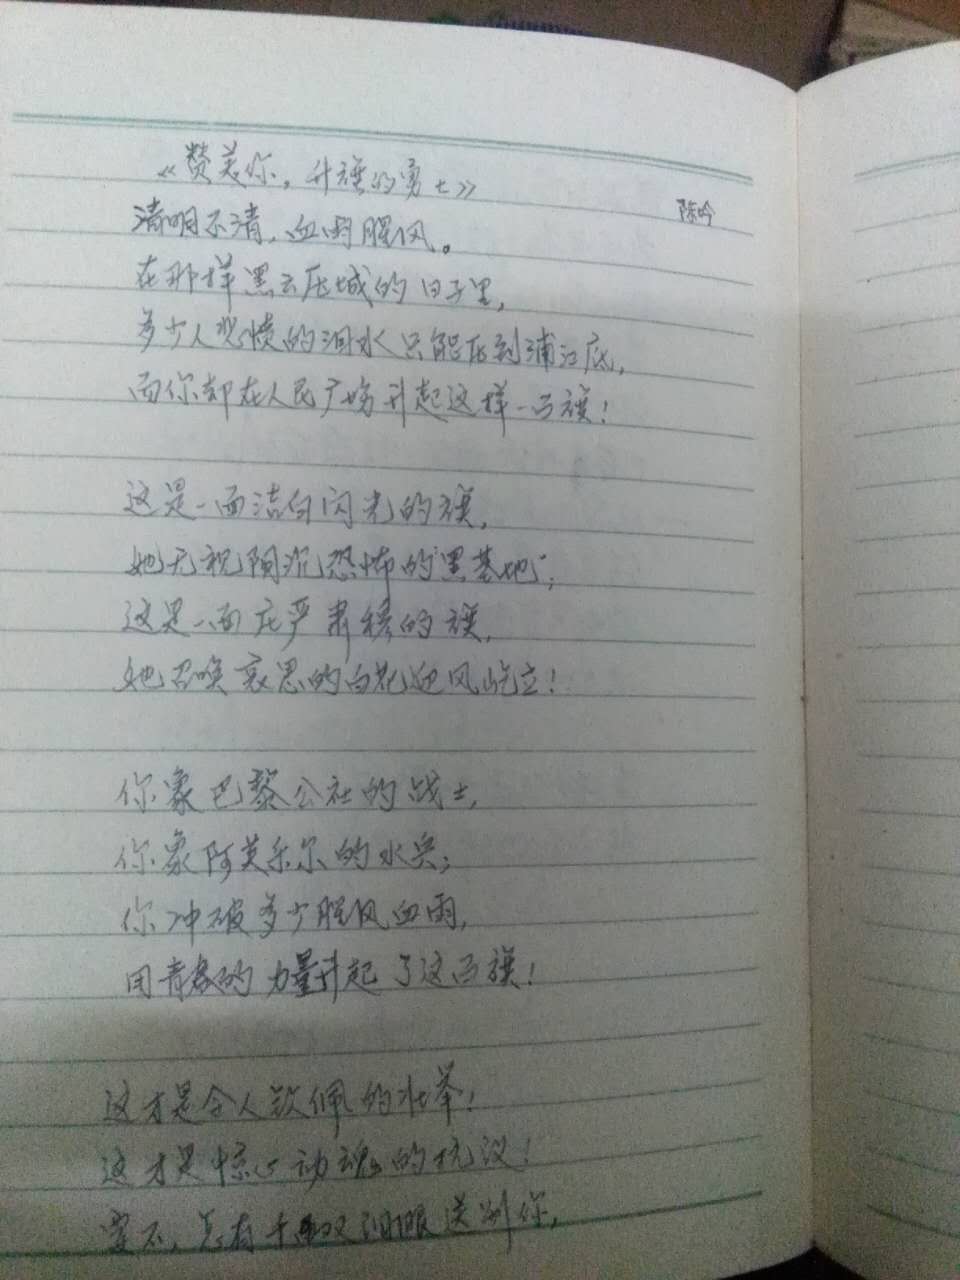 《赞美你,升旗的勇士》
陈吟
清明不清,血雨腥风。
在那样黑云压城的日子里,
多少人悲愤的泪水只能压到浦江底,
而你却在人民广场升起这样一面旗!
这是一面洁白闪光的旗,
她无视阴沉恐怖的“黑基地”;
这是一面庄严肃穆的旗,
她召唤哀思的白花迎风屹立!
你象巴黎公社的战士,
你象阿芙乐尔的水兵;
你冲破多少腥风血雨,
用青春的力量升起了这面旗!
这才是令人钦佩的壮举!
这才是惊心动魂的抗议!
要不,怎有千万双泪眼送别你,